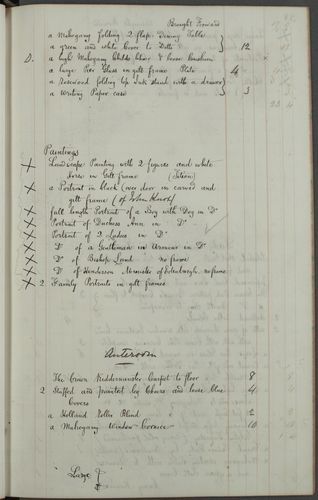 Brought Forward
a Mahogany folding 2 flap Dining Table
a green and white Cover to Ditto } 12
D. a high Mahogany Childs Chair & loose Cushion
a large Pier Glass in gilt frame Plate 4
a Rosewood folding up Ink Stand with a drawer
a Writing Paper case } 3
Paintings
X Landscape Painting with 2 figures and white
horse in Gilt frame (Titian)
X a Portrait in black (over door in carved and
gilt frame (of John Knox)
X full length Portrait of a Boy with Dog in Do
X Portrait of Duchess Ann in Do
X Portrait of 2 Ladies in Do
X Do of a Gentleman in Armour in Do
X Do of Bishop no frame
X Do of Henderson Minister of Edenburgh, no frame
X 2 Family Portraits in gilt frames
Anteroom
The Crown Kidderminster Carpet to floor 8
2 Stuffed and painted leg Chairs and loose blue 4
Covers
a Holland Roller Blind 2
a Mahogany Window Cornice 10
Large